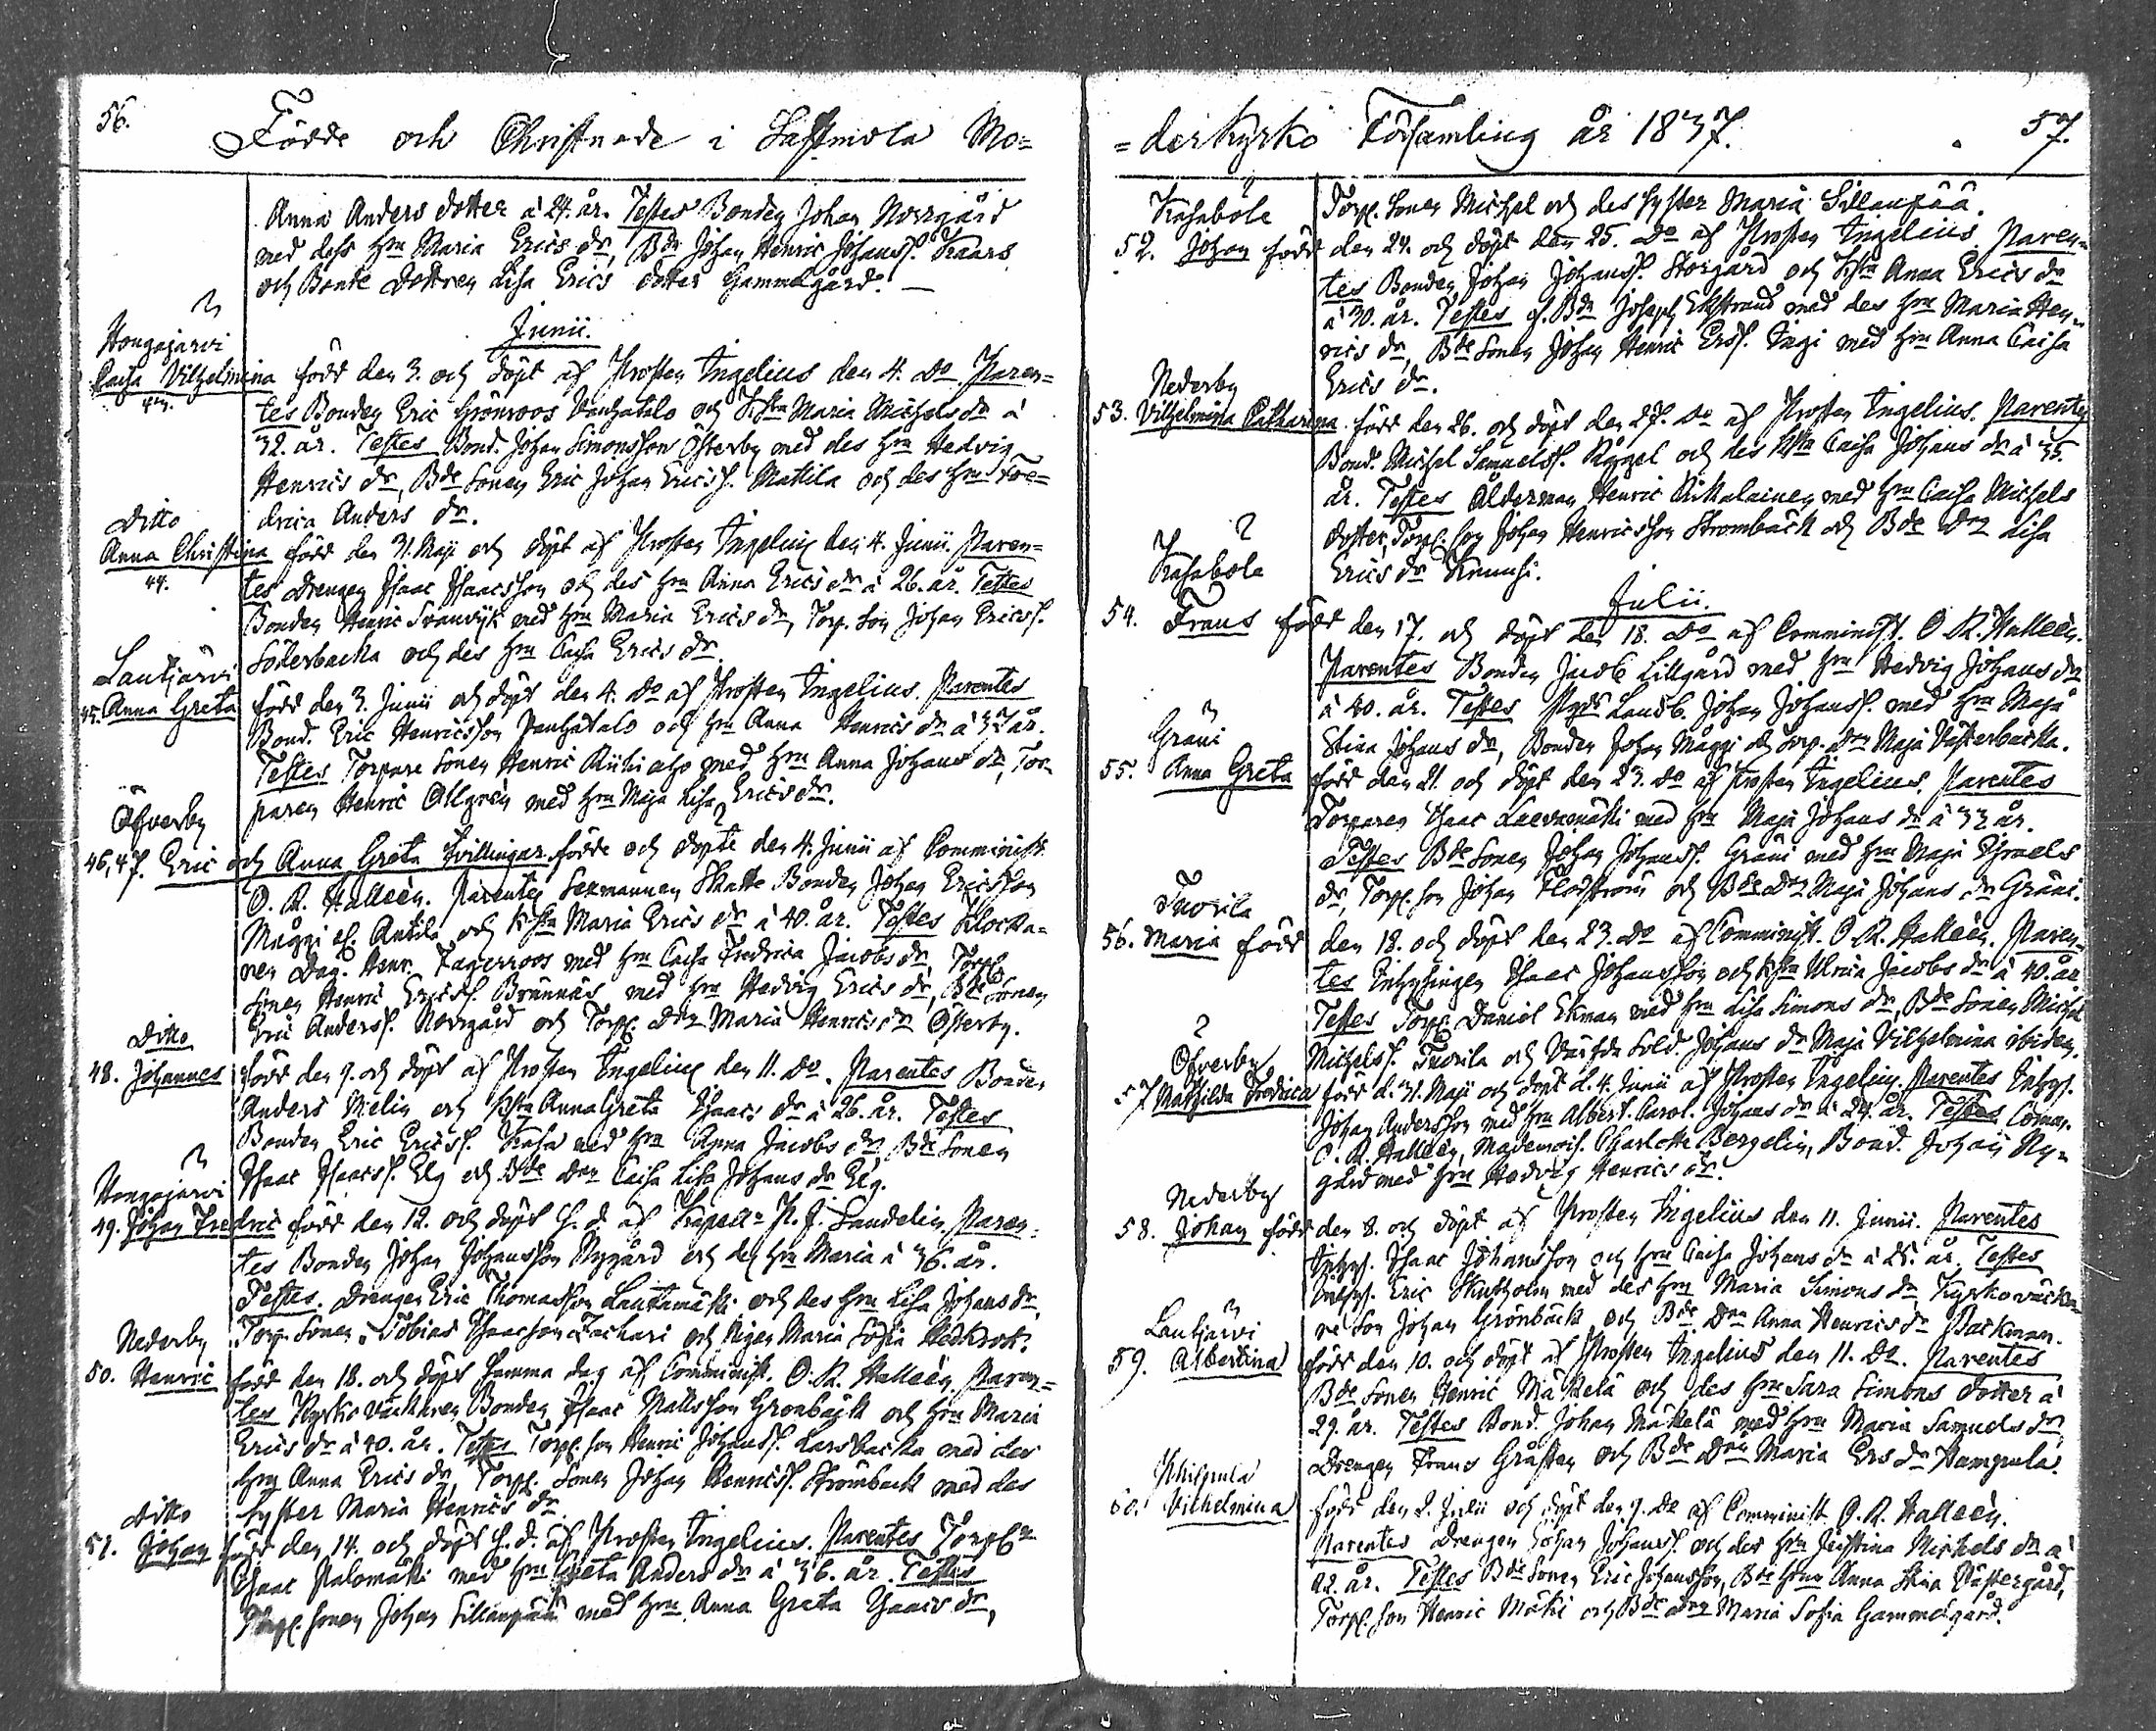 56.
Födde och Christnade i Lastmola Mo=
Anna Anders dotter à 24. år. Testes Bonden Johan Norrgård
med dess hru Maria Erics dr, Bdr Johan Henric Johanss. Kaars
och Bonde dottren Lisa Erics dotter Gammelgård. —
Junii.
Hongajärvi
Caisa Vilhelmina född den 3. och döpt af Prosten Ingelius den 4. do Paren=
43.
tes Bonden Eric Grönroos Vanhatalo och hru Maria Michels dr à
32. år. Testes Bond. Johan Simonsson Österby med des hru Hedvig
Henrics dr, Bde Sonen Eric Johan Ericss. Mattila och des hru Fre=
drica Anders dr.
Ditto
Anna Christina född den 31. Maji och döpt af Prosten Ingelius den 4. Junii. Paren=
44.
tes Drengen Isaac Isaacsson och des hru Anna Erics dr à 26. år. Testes
Bonden Henric Svanvijk med hru Maria Erics dr, Torp. Son Johan Ericss.
Söderbacka och des hru Caisa Erics dr
Lautjärvi
45. Anna Greta född den 3. Junii och döpt den 4. do af Prosten Ingelius. Parentes
Bond. Eric Henricsson Vanhatalo och hru Anna Henrics dr à 32 år.
Testes Torpare Sonen Henric Riihiaho med hru Anna Johans dr, Tor=
paren Henric Ollgrén med hru Maja Lisa Erics dr.
Öfverby
46, 47. Eric och Anna Greta Tvillingar födde och döpte den 4. Junii af Comminist.
O. R. Halleén. Parentes Sexmannen Skatte Bonden Johan Ericsson
Mäggi el. Anttila och hru Maria Erics dr à 40. år. Testes Klocka=
ren Dag. Henr. Fagerroos med hru Caisa Fredrica Jacobs dr, Torp.
Sonen Henric Ericss. Brunnäs med hru Hedvig Erics dr, Bde Sonen
Eric Anderss. Norrgård och Torp. drn Maria Henrics dr Österby.
Ditto
48. Johannes född den 9. och döpt af Prosten Ingelius den 11. do. Parentes Bonden
Anders Melin och hru Anna Greta Isaacs dr à 26. år. Testes
Bonden Eric Ericss. Kasa med hru Anna Jacobs dr, Bde Sonen
Isaac Isaacss. Elg och Bde drn Caisa Lisa Johans dr Elg.
Hongajärvi
49. Johan Fredric född den 12. och döpt s. d. af Kapell. P. J. Sandelin. Paren=
tes Bonden Johan Johansson Nygård och des hru Maria à 36. år.
Testes. Drengen Eric Thomasson Lautamäki och des hru Lisa Johans dr,
Torp. Sonen Tobias Isaacson Zachari och Pigan Maria Sofia
Nederby
50. Henric född den 18. och döpt samma dag af Comminist. O. R. Halleén. Paren=
tes Kyrko väcktaren Bonden Isaac Mattsson Grönbäck och hru Maria
Erics dr à 40. år. Testes Torp. son Henric Johanss. Larsbacka med des
hru Anna Erics dr, Torp. Sonen Johan Henricss. Strömback med des
Syster Maria Henrics dr.
Ditto
51. Johan född den 14. och döpt s. d. af Prosten Ingelius. Parentes Torp.
Isaac Palomäki med hru Greta Anders dr à 36. år. Testes
Torp. Sonen Johan Sillanpää med hru Anna Greta Isaacs dr,
=derkyrko Församling år 1837. 57.
Torp. Sonen Michel och des Syster Maria Sillanpää.
Kasaböle
52. Johan född den 24. och döpt den 25. do af Prosten Ingelius Paren=
tes Bonden Johan Johanss. Storgård och hru Anna Erics dr
à 30. år. Testes f. Bdn Joseph Ekstrand med des hru Maria Hen=
rics dr, Bde Sonen Johan Henric Erss. Ingi med hru Anna Caisa
Erics dr.
Nederby
53. Vilhelmina Catharina född den 26. och döpt den 27. do af Prosten Ingelius. Parentes
Bond. Michel Samuelss. och des hru Caisa Johans dr à 35.
år. Testes Ålderman Henric Rikalainen med hru Caisa Michels
dotter, Torp. son Johan Henricsson Strömbäck och Bde drn Lisa
Erics dr Kruusi.
Julii.
Kasaböle
54. Frans född den 17. och döpt den 18. do af Comminist. O. R. Halleén.
Parentes Bonden Jacob Lillgård med hru Hedvig Johans dr
à 40. år. Testes Landb. Johan Johanss. med hru Maja
Stina Johans dr, Bonden Johan Mäggi och Torp. drn Maja Västerbacka.
Gräni
55. Anna Greta född den 21. och döpt den 23. do af Prosten Ingelius. Parentes
Torparen Isaac med hru Maja Johans dr à 32 år.
Testes Bde Sonen Johan Johanss. Gräni med hru Maja Israels
dr, Torp. son Johan Flodström och Bde drn Maja Johans dr Gräni.
Tuorila
56. Maria född den 18. och döpt den 23. do af Comminist. O. R. Halleén. Paren=
tes Inhysingen Isaac Johansson och hru Ulrica Jacobs dr à 40. år
Testes Torp. Daniel Ekman med hru Lisa Simons dr, Bde Sonen Michel
Michelss. Tuorila och Sold. Johans dr Maja Vilhelmina ibidem.
Öfverby
57 Mathilda Fredrica född d. 31. Maji och döpt d. 4. Junii af Prosten Ingelius. Parentes Inhys.
Johan Andersson med hru Albert. Carol. Johans dr à 24. år. Testes Comm.
O. R. Halleén, Mademois. Charlotte Bergelin, Bond. Johan Ny=
gård med hru Hedvig Henrics dr.
Nederby
58. Johan född den 8. och döpt af Prosten Ingelius den 11. Junii. Parentes
Inhys. Isaac Johansson och hru Caisa Johans dr à 25. år. Testes
Inhys. Eric Skutholm med des hru Maria Simons dr, Kyrkoväckta
re son Johan Grönbäck och Bde Drn Anna Henrics dr Backman.
Lautjärvi
59. Albertina född den 10. och döpt af Prosten Ingelius den 11. do. Parentes
Bde Sonen Henric Mäkelä och des hru Sara Simons dotter à
29. år. Testes Bond. Johan Mäkelä med hru Maria Samuels dr,
Drengen Frans Gråsten och Bde Drn Maria Ers dr Pampula.
60. Vilhelmina född den 2. Julii och döpt den 9. do af Comminist. O. R. Halleén.
Parentes Drengen Johan Johanss. och des hru Justina Michels dr à
42. år. Testes Bde Sonen Eric Johansson, Bde Anna Stina Västergård,
Torp. son Henric Mäki och Bde drn Maria Sofia Gammelgård.